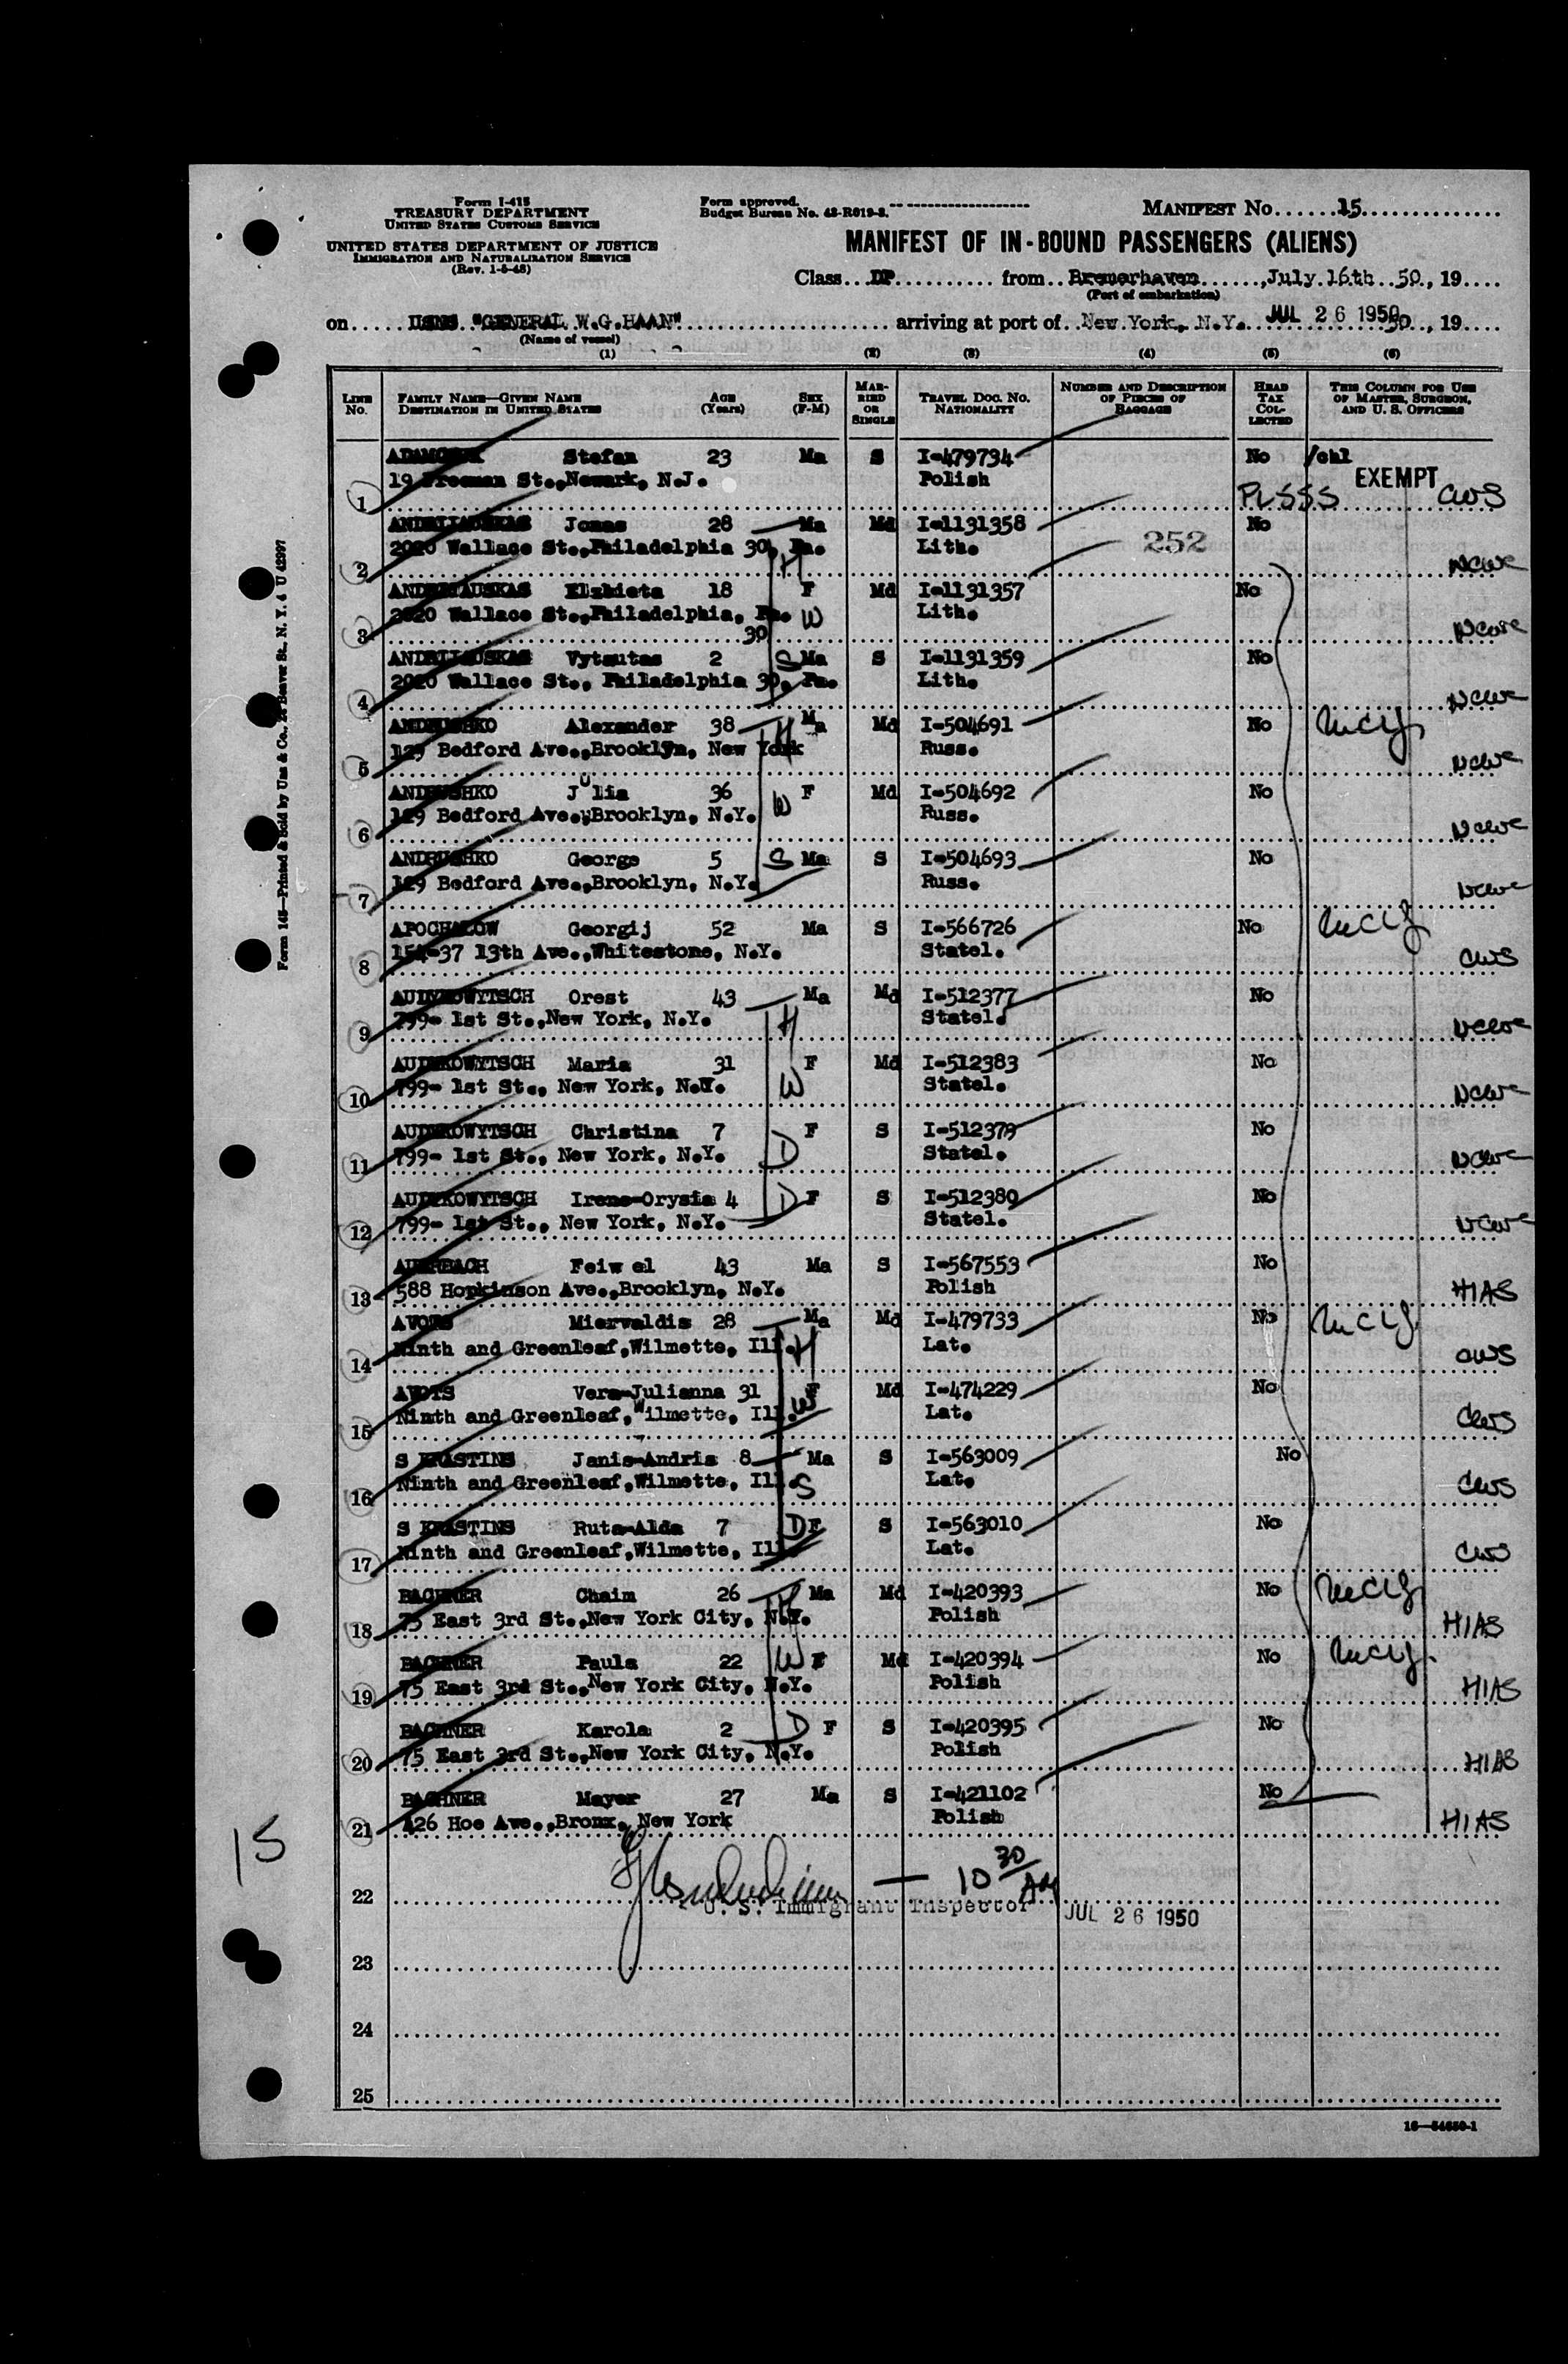 Form I-415
TREASURY DEPARTMENT
UNITED STATES CUSTOMS SERVICE
UNITED STATES DEPARTMENT OF JUSTICE
IMMIGRATION AND NATURALIZATION SERVICE
(Rev. 1-5-48)
Form approved.
Budget Bureau No. 43-R019-3.
MANIFEST No. 15
MANIFEST OF IN-BOUND PASSENGERS (ALIENS)
Class DP from Bremerhaven, July 16th 50, 19
(Port of embarkation)
on USNS "GENERAL W.G.HAAN" arriving at port of New York, N.Y. JUL 26 1950 50, 19
(Name of vessel)
(1) (2) (3) (4) (5) (6)
LINE No. FAMILY NAME—GIVEN NAME DESTINATION IN UNITED STATES AGE (Years) SEX (F-M) MARRIED OR SINGLE TRAVEL DOC. NO. NATIONALITY NUMBER AND DESCRIPTION OF PIECES OF BAGGAGE HEAD TAX COLLECTED THIS COLUMN FOR USE OF MASTER, SURGEON, AND U. S. OFFICERS
Stefan 23 Ma S I-479734 No /chl
1 19 Freeman St.,Newark, N.J. Polish PLSSS EXEMPT CWS
Jonas 28 Ma Md I-1131358 252 No
2 2020 Wallace St.,Philadelphia 30, Pa. H Lith. NCWC
Elzbieta 18 F Md I-1131357 No
3 2020 Wallace St.,Philadelphia, Pa. 30 W Lith. NCWC
Vytautas 2 S Ma S I-1131359 No
4 2020 Wallace St., Philadelphia 30, Pa. Lith. NCWC
ANDRUSHKO Alexander 38 H Ma Md I-504691 No
5 129 Bedford Ave.,Brooklyn, New York Russ. NCWC
ANDRUSHKO Julia 36 F Md I-504692 No
6 129 Bedford Ave.,Brooklyn, N.Y. W Russ. NCWC
ANDRUSHKO George 5 S Ma S I-504693 No
7 129 Bedford Ave.,Brooklyn, N.Y. Russ. NCWC
APOCHALOW Georgij 52 Ma S I-566726 No
8 154-37 13th Ave.,Whitestone, N.Y. Statel. CWS
AUDYKOWYTSCH Orest 43 Ma Md I-512377 No
9 799- 1st St.,New York, N.Y. H Statel. NCWC
AUDYKOWYTSCH Maria 31 F Md I-512383 No
10 799- 1st St., New York, N.Y. W Statel. NCWC
AUDYKOWYTSCH Christina 7 F S I-512379 No
11 799- 1st St., New York, N.Y. D Statel. NCWC
AUDYKOWYTSCH Irene-Orysia 4 D F S I-512380 No
12 799- 1st St., New York, N.Y. Statel. NCWC
AUERBACH Feiwel 43 Ma S I-567553 No
13 588 Hopkinson Ave.,Brooklyn, N.Y. Polish HIAS
AVOTS Mierwaldis 28 Ma Md I-479733 No
14 Ninth and Greenleaf,Wilmette, Ill. H Lat. CWS
AVOTS Vera-Julianna 31 F Md I-474229 No
15 Ninth and Greenleaf,Wilmette, Ill. W Lat. CWS
S KRASTINS Janis-Andris 8 Ma S I-563009 No
16 Ninth and Greenleaf,Wilmette, Ill. S Lat. CWS
S KRASTINS Ruta-Alda 7 D F S I-563010 No
17 Ninth and Greenleaf,Wilmette, Ill. Lat. CWS
BACHNER Chaim 26 Ma Md I-420393 No
18 75 East 3rd St.,New York City, N.Y. H Polish HIAS
BACHNER Paula 22 W F Md I-420394 No
19 75 East 3rd St.,New York City, N.Y. Polish HIAS
BACHNER Karola 2 D F S I-420395 No
20 75 East 3rd St.,New York City, N.Y. Polish HIAS
BACHNER Mayer 27 Ma S I-421102 No
21 426 Hoe Ave.,Bronx, New York Polish HIAS
15
— 10 30/AM
22 U. S. Immigrant Inspector JUL 26 1950
23
24
25
16—54650-1
Form 145—Printed & Sold by Unz & Co., 24 Beaver St., N. Y. 4 U 42297